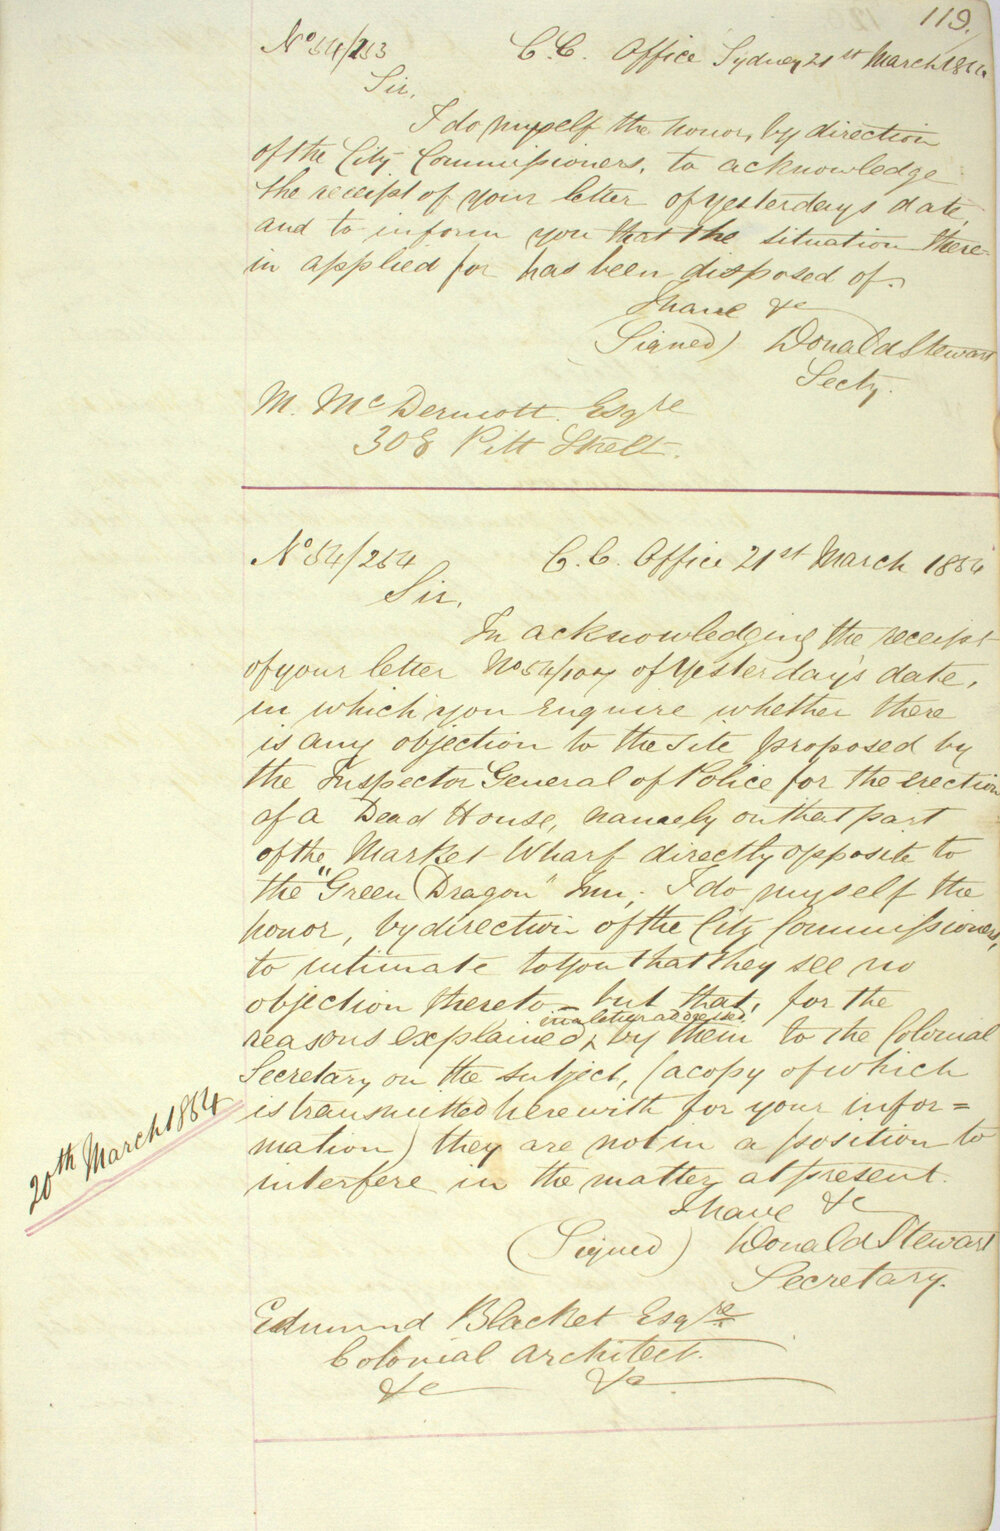 119.
No 54/253 C.C. Office Sydney 21st March 1854
Sir,
I do myself the honor, by direction
of the City Commissioners, to acknowledge
the receipt of your letter of yesterday's date,
and to inform you that the situation there-
in applied for has been disposed of.
I have &c
(Signed) Donald Stewart
Secty.
M. McDermott Esqre
308 Pitt Street.
No 54/254 C.C. Office 21st March 1854
Sir,
In acknowledging the receipt
of your letter No 54/107 of yesterday's date,
in which you enquire whether there
is any objection to the site proposed by
the Inspector General of Police for the erection
of a Dead House, namely on that part
of the Market Wharf directly opposite to
the "Green Dragon" Inn; I do myself the
honor, by direction of the City Commissioners,
to intimate to you that they see no
objection thereto – but that, for the
in a letter addressed
reasons explained, by them to the Colonial
Secretary on the subject, (a copy of which
is transmitted herewith for your infor=
mation) they are not in a position to
interfere in the matter at present.
20th March 1854
I have &c
(Signed) Donald Stewart
Secretary.
Edmund Blacket Esqre
Colonial Architect.
&c &c